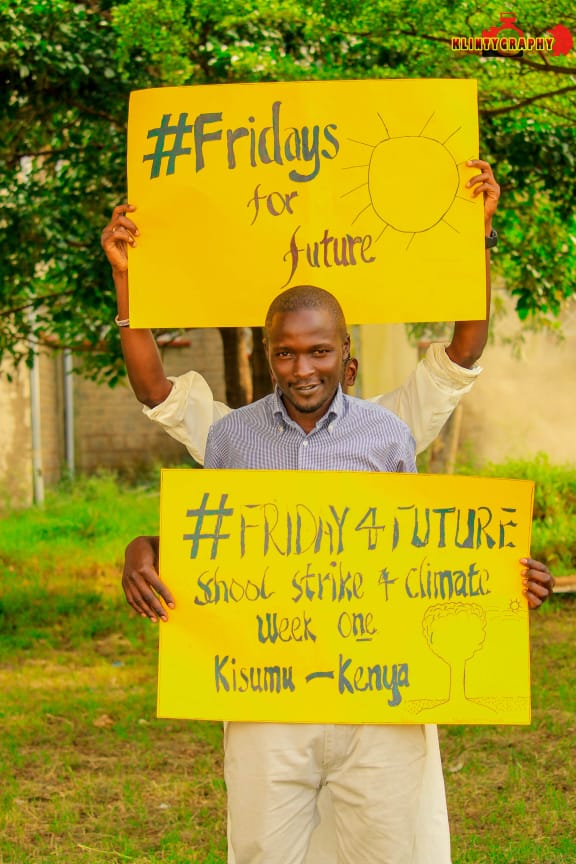 KLINTYGRAPHY
#Fridays
for
future
#FRIDAY 4 FUTURE
School strike 4 climate
Week one
Kisumu - Kenya